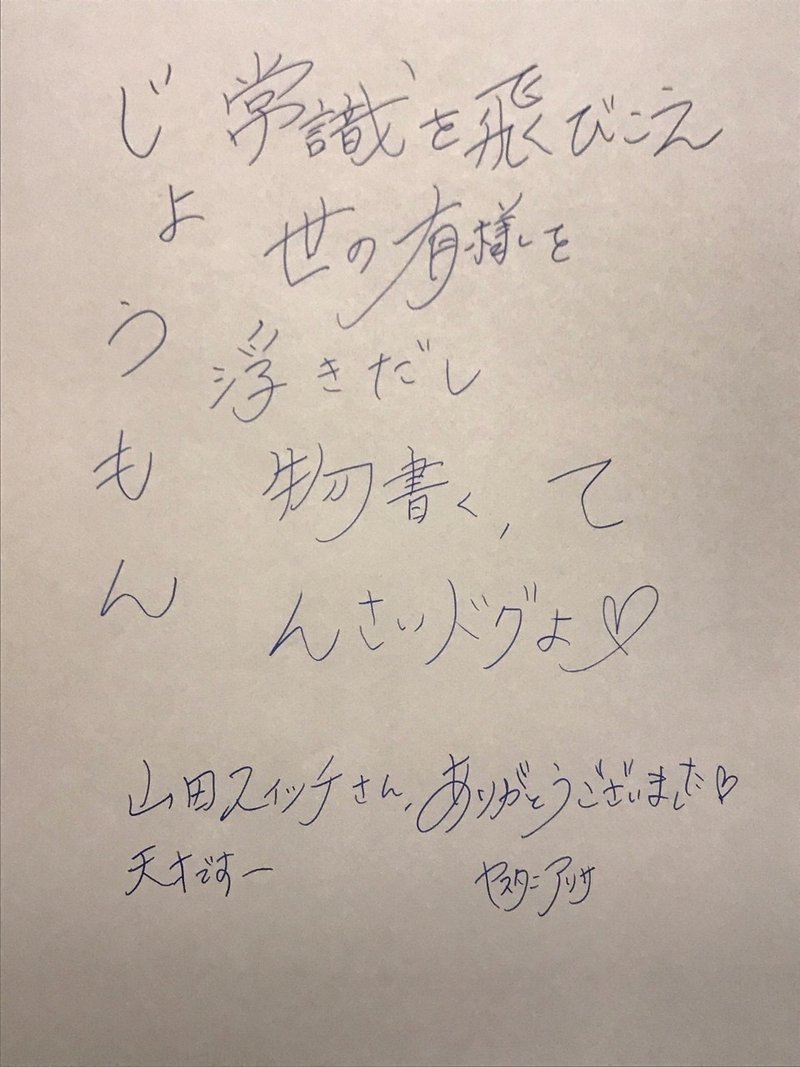 じょうもん
常識を飛びこえ
世の有様を
浮きだし
物書く、て
んさいドグよ♡
山田スイッチさん、ありがとうございました♡
天才ですー
ヤスタニアリサ